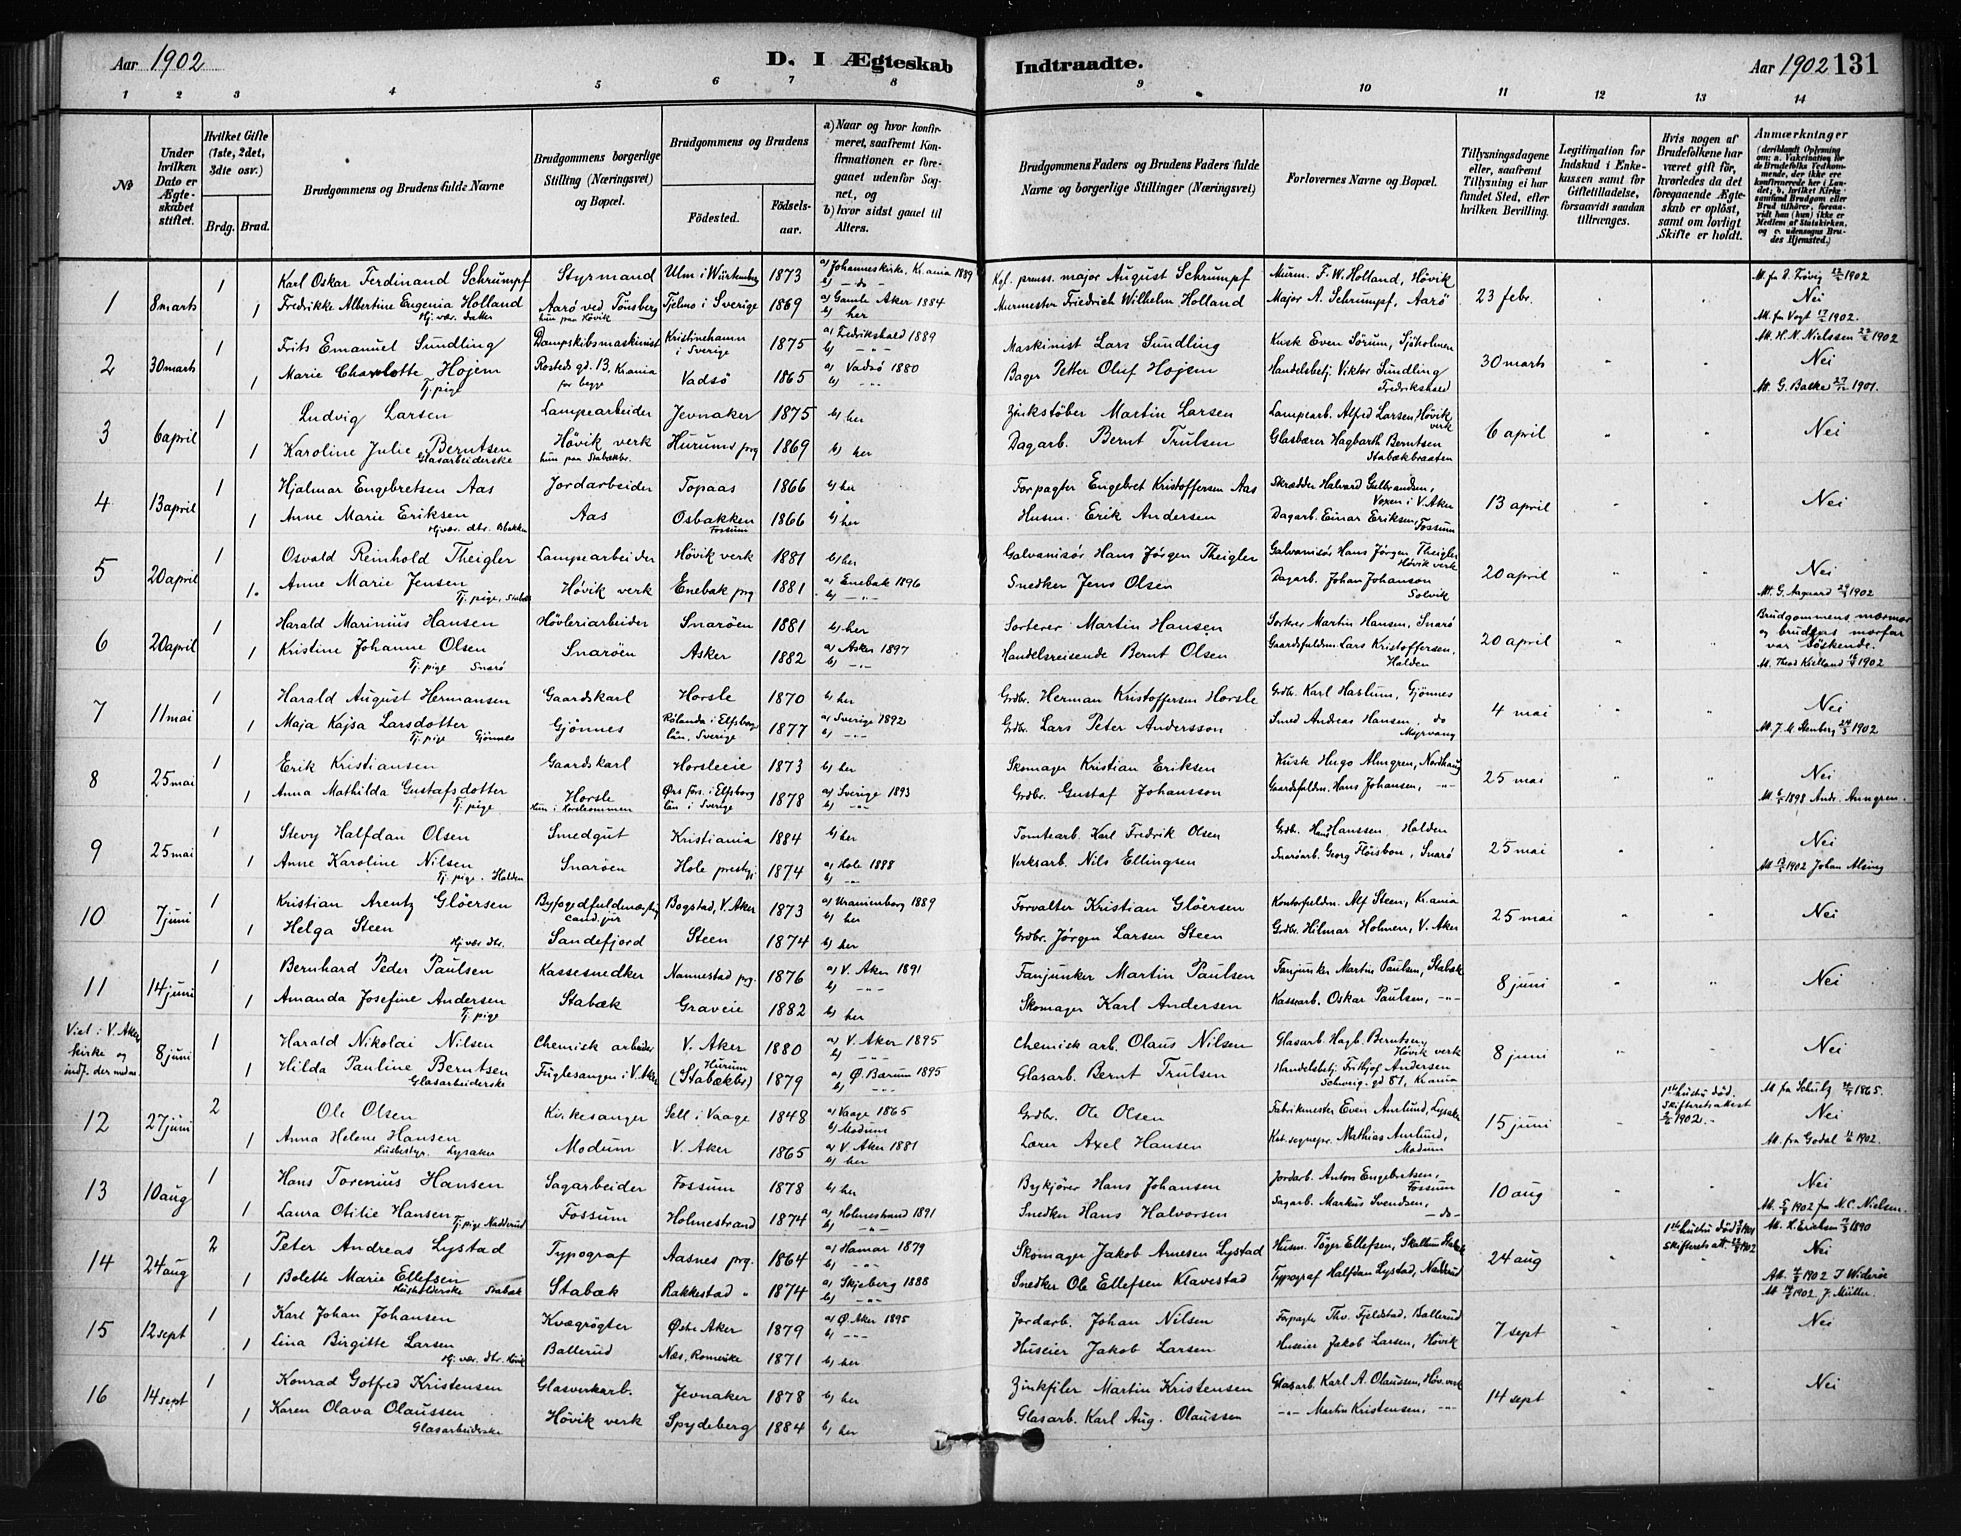 Aar 1902
D. I Ægteskab Indtraadte.
Aar 1902 131
1 2 3 4 5 6 7 8 9 10 11 12 13 14
No
Under hvilken Dato er Ægteskabet stiftet.
Hvilket Gifte (1ste, 2det, 3dte osv.)
Brdg. Brud.
Brudgommens og Brudens fulde Navne
Brudgommens borgerlige Stilling (Næringsvei) og Bopæl.
Brudgommens og Brudens
Fødested. Fødselsaar.
a) Naar og hvor konfirmeret, saafremt Konfirmationen er foregaaet udenfor Sognet, og
b) hvor sidst gaaet til Alters.
Brudgommens Faders og Brudens Faders fulde Navne og borgerlige Stillinger (Næringsvei)
Forlovernes Navne og Bopæl.
Tillysningsdagene eller, saafremt Tillysning ei har fundet Sted, efter hvilken Bevilling.
Legitimation for Indskud i Enkekassen samt for Giftetilladelse, forsaavidt saadan tiltrænges.
Hvis nogen af Brudefolkene har været gift før, hvorledes da det foregaaende Ægteskab er opløst, samt om lovligt Skifte er holdt.
Anmærkninger (deriblandt Oplysning om: a. Vakcination for de Brudefolks Vedkommende, der ikke ere konfirmerede her i Landet; b. hvilket Kirkesamfund Brudgom eller Brud tilhører, forsaavidt han (hun) ikke er Medlem af Statskirken, og c. udensogns Brudes Hjemsted.)
1 8 marts 1 Karl Oskar Ferdinand Schrumpf Styrmand Ulm i Würtemberg 1873 a) Johanneskirk. Kr.ania 1889 b) - do - Kgl. preuss. major August Schrumpf Murm. F. W. Holland, Høvik 23 febr.
1 Fredrikke Albertine Eugenia Holland Hj. vær. datter Aarø ved Tønsberg hun paa Høvik Tjelmo i Sverige 1869 a) Gamle Aker 1884 b) her Murmester Friedrich Wilhelm Holland Major A. Schrumpf, Aarø Nei
2 30 marts 1 Frits Emanuel Sundling Dampskibsmaskinist Kristinehamn i Sverige 1875 a) Fredrikshald 1889 b) -"- Maskinist Lars Sundling Kusk Even Sørum, Sjøholmen 30 marts
1 Marie Charlotte Hojem Tj. pige Rosteds gd. 13, Kr.ania for begge Vadsø 1865 a) Vadsø 1880 b) -"- Bager Petter Oluf Hojem Handelsbetj. Viktor Sundling Fredrikshald Nei
3 6 april 1 Ludvig Larsen Lampearbeider Jevnaker 1875 b) her Zinkstøber Martin Larsen Lampearb. Alfred Larsen, Høvik verk 6 april Nei
1 Karoline Julie Berntsen Glasarbeiderske Høvik verk hun paa Stabækbr. Hurum prg 1869 b) her Dagarb. Bernt Trulsen Glasbærer Hagbarth Berntsen Stabækbraaten
4 13 april 1 Hjalmar Engebretsen Aas Jordarbeider Topaas 1866 b) her Forpagter Engebret Kristoffersen Aas Skrædder Halvard Gulbrandsen, Voxen i V. Aker 13 april Nei
1 Anne Marie Eriksen Hj. vær. dtr. Aas Osbakken Fossum 1866 b) her Husm. Erik Andersen Dagarb. Einar Eriksen, Fossum
5 20 april 1 Osvald Reinhold Theigler Lampearbeider Høvik verk 1881 b) her Galvanisør Hans Jørgen Theigler Galvanisør Hans Jørgen Theigler Høvik verk 20 april Nei
1. Anne Marie Jensen Tj. pige, Stabæk Høvik verk Enebak prg 1881 a) Enebak 1896 b) -"- Snedker Jens Olsen Dagarb. Johan Johanson Solvik
6 20 april 1 Harald Marinius Hansen Høvleriarbeider Snarøen 1881 b) her Sorterer Martin Hansen Sorterer Martin Hansen, Snarø 20 april Brudgommens mormor og brudens morfar var søskende.
1 Kristine Johanne Olsen Tj. pige Snarø Snarøen Asker 1882 a) Asker 1897 b) -"- Handelsreisende Bernt Olsen Gaardsfuldm. Lars Kristoffersen, Halden
7 11 mai 1 Harald August Hermansen Gaardskarl Horsle 1870 b) her Grdbr. Herman Kristoffersen Horsle Grdbr. Karl Haslum, Gjønnes 4 mai Nei
1 Maja Kajsa Larsdotter Tj. pige Gjønnes Gjønnes Rølanda i Elfsborg län, Sverige 1877 a) Sverige 1892 b) -"- Grdbr. Lars Peter Andersson Smed Andreas Hansen, do Myrvang
8 25 mai 1 Erik Kristiansen Gaardskarl Horsleeie 1873 b) her Skomager Kristian Eriksen Kusk Hugo Almgren, Nordhaug 25 mai Nei
1 Anna Mathilda Gustafsdotter Tj. pige Horsle 1878 a) Sverige 1893 b) -"- Grdbr. Gustaf Johansson Gaardsfuldm. Hans Johansen, -"-
9 25 mai 1 Stevy Halfdan Olsen Smedgut Kristiania 1884 b) her Tomtearb. Karl Fredrik Olsen Grdbr. Hans Hanssen, Halden 25 mai Nei
1 Anne Karoline Nilsen Tj. pige. Halden Snarøen Hole prestgj. 1874 a) Hole 1888 b) -"- Verksarb. Nils Ellingsen Snarøarb. Georg Fløisbon, Snarø
10 7 juni 1 Kristian Arentz Gløersen Byfogdfuldmægtig cand. jur Bogstad, V. Aker 1873 a) Uranienborg 1889 b) her Forvalter Kristian Gløersen Kontorfuldm. Alf Steen, Kr.ania 25 mai Nei
1 Helga Steen Hj. vær. dtr. Sandefjord Steen 1874 b) her Grdbr. Jørgen Larsen Steen Grdbr. Hilmar Holmen, V. Aker
11 14 juni 1 Bernhard Peder Paulsen Kassesnedker Nannestad prg. 1876 a) V. Aker 1891 b) -"- Fanjunker Martin Paulsen Fanjunker Martin Paulsen, Stabæk 8 juni Nei
1 Amanda Josefine Andersen Tj. pige Stabæk Graveie 1882 b) her Skomager Karl Andersen Kassearb. Oskar Paulsen, -"-
Viet i V. Aker kirke og indf. der med no. 8 juni 1 Harald Nikolai Nilsen Chemisk arbeider V. Aker 1880 a) V. Aker 1895 b) -"- Chemisk arb. Olaus Nilsen Glasarb. Hagb. Berntsen, Høvik verk 8 juni Nei
1 Hilda Pauline Berntsen Glasarbeiderske Fuglesangen i V. Aker Hurum (Stabækbr.) 1879 a) Ø. Bærum 1895 b) -"- Glasarb. Bernt Trulsen Handelsbetj. Fritjof Andersen Schweig. gd 81, Kr.ania
12 27 juni 2 Ole Olsen Kirkesanger Sell i Vaage 1848 a) Vaage 1865 b) Modum Grdbr. Ole Olsen Fabrikmester Even Amlund, Lysaker 15 juni 1ste hustru død. Skifteretsattest 1902. Nei
1 Anna Helene Hansen Husbestyr. Lysaker Modum V. Aker 1865 a) V. Aker 1881 b) her Lærer Axel Hansen Mathias Amlund, Modum
13 10 aug 1 Hans Torenius Hansen Sagarbeider Fossum 1878 b) her Bykjører Hans Johansen Jordarb. Anton Engebretsen, Fossum 10 aug Nei
1 Laura Otilie Hansen Tj. pige Nadderud Fossum Holmestrand 1874 a) Holmestrand 1891 b) -"- Snedker Hans Halvorsen Sagarb. Markus Svendsen, - do -
14 24 aug 2 Peter Andreas Lystad Typograf Aasnes prg. 1864 a) Hamar 1879 b) -"- Skomager Jakob Arnesen Lystad Husm. Tøger Ellefsen, Skallum Stabæk 24 aug 1ste hustru død Nei
1 Bolette Marie Ellefsen Husholderske Stabæk Stabæk Rakkestad " 1874 a) Skjeberg 1888 b) -"- Snedker Ole Ellefsen Klavestad Typograf Halfdan Lystad, Nadderud
15 12 sept 1 Karl Johan Johansen Kvægrøgter Østre Aker 1879 a) Ø. Aker 1895 b) -"- Jordarb. Johan Nilsen Forpagter Thv. Fjeldstad, Ballerud 7 sept Nei
1 Lina Birgitte Larsen Hj. vær. dtr. Høvik Ballerud Næs, Romerike 1871 b) her Huseier Jakob Larsen Huseier Jakob Larsen, Høvik
16 14 sept 1 Konrad Gotfred Kristensen Glasverkarb. Jevnaker 1878 b) her Zinkfiler Martin Kristensen Glasarb. Karl A. Olaussen, Høv. verk 14 sept Nei
1 Karen Olava Olaussen Glasarbeiderske Høvik verk Spydeberg 1884 b) her Glasarb. Karl Aug. Olaussen -"- Martin Kristensen, -"-